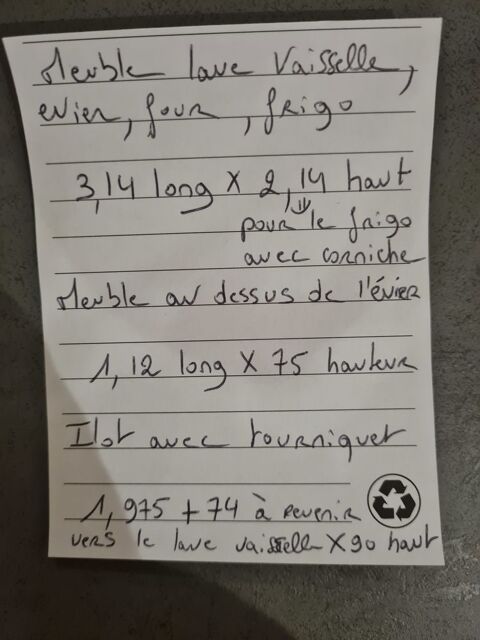 Meuble lave Vaisselle,
evier, four, frigo
3,14 long X 2,14 haut
pour le frigo
avec corniche
Meuble au dessus de l'évier
1,12 long X 75 hauteur
Ilot avec tourniquet
1,975 + 74 à revenir
vers le lave vaisselle X 90 haut